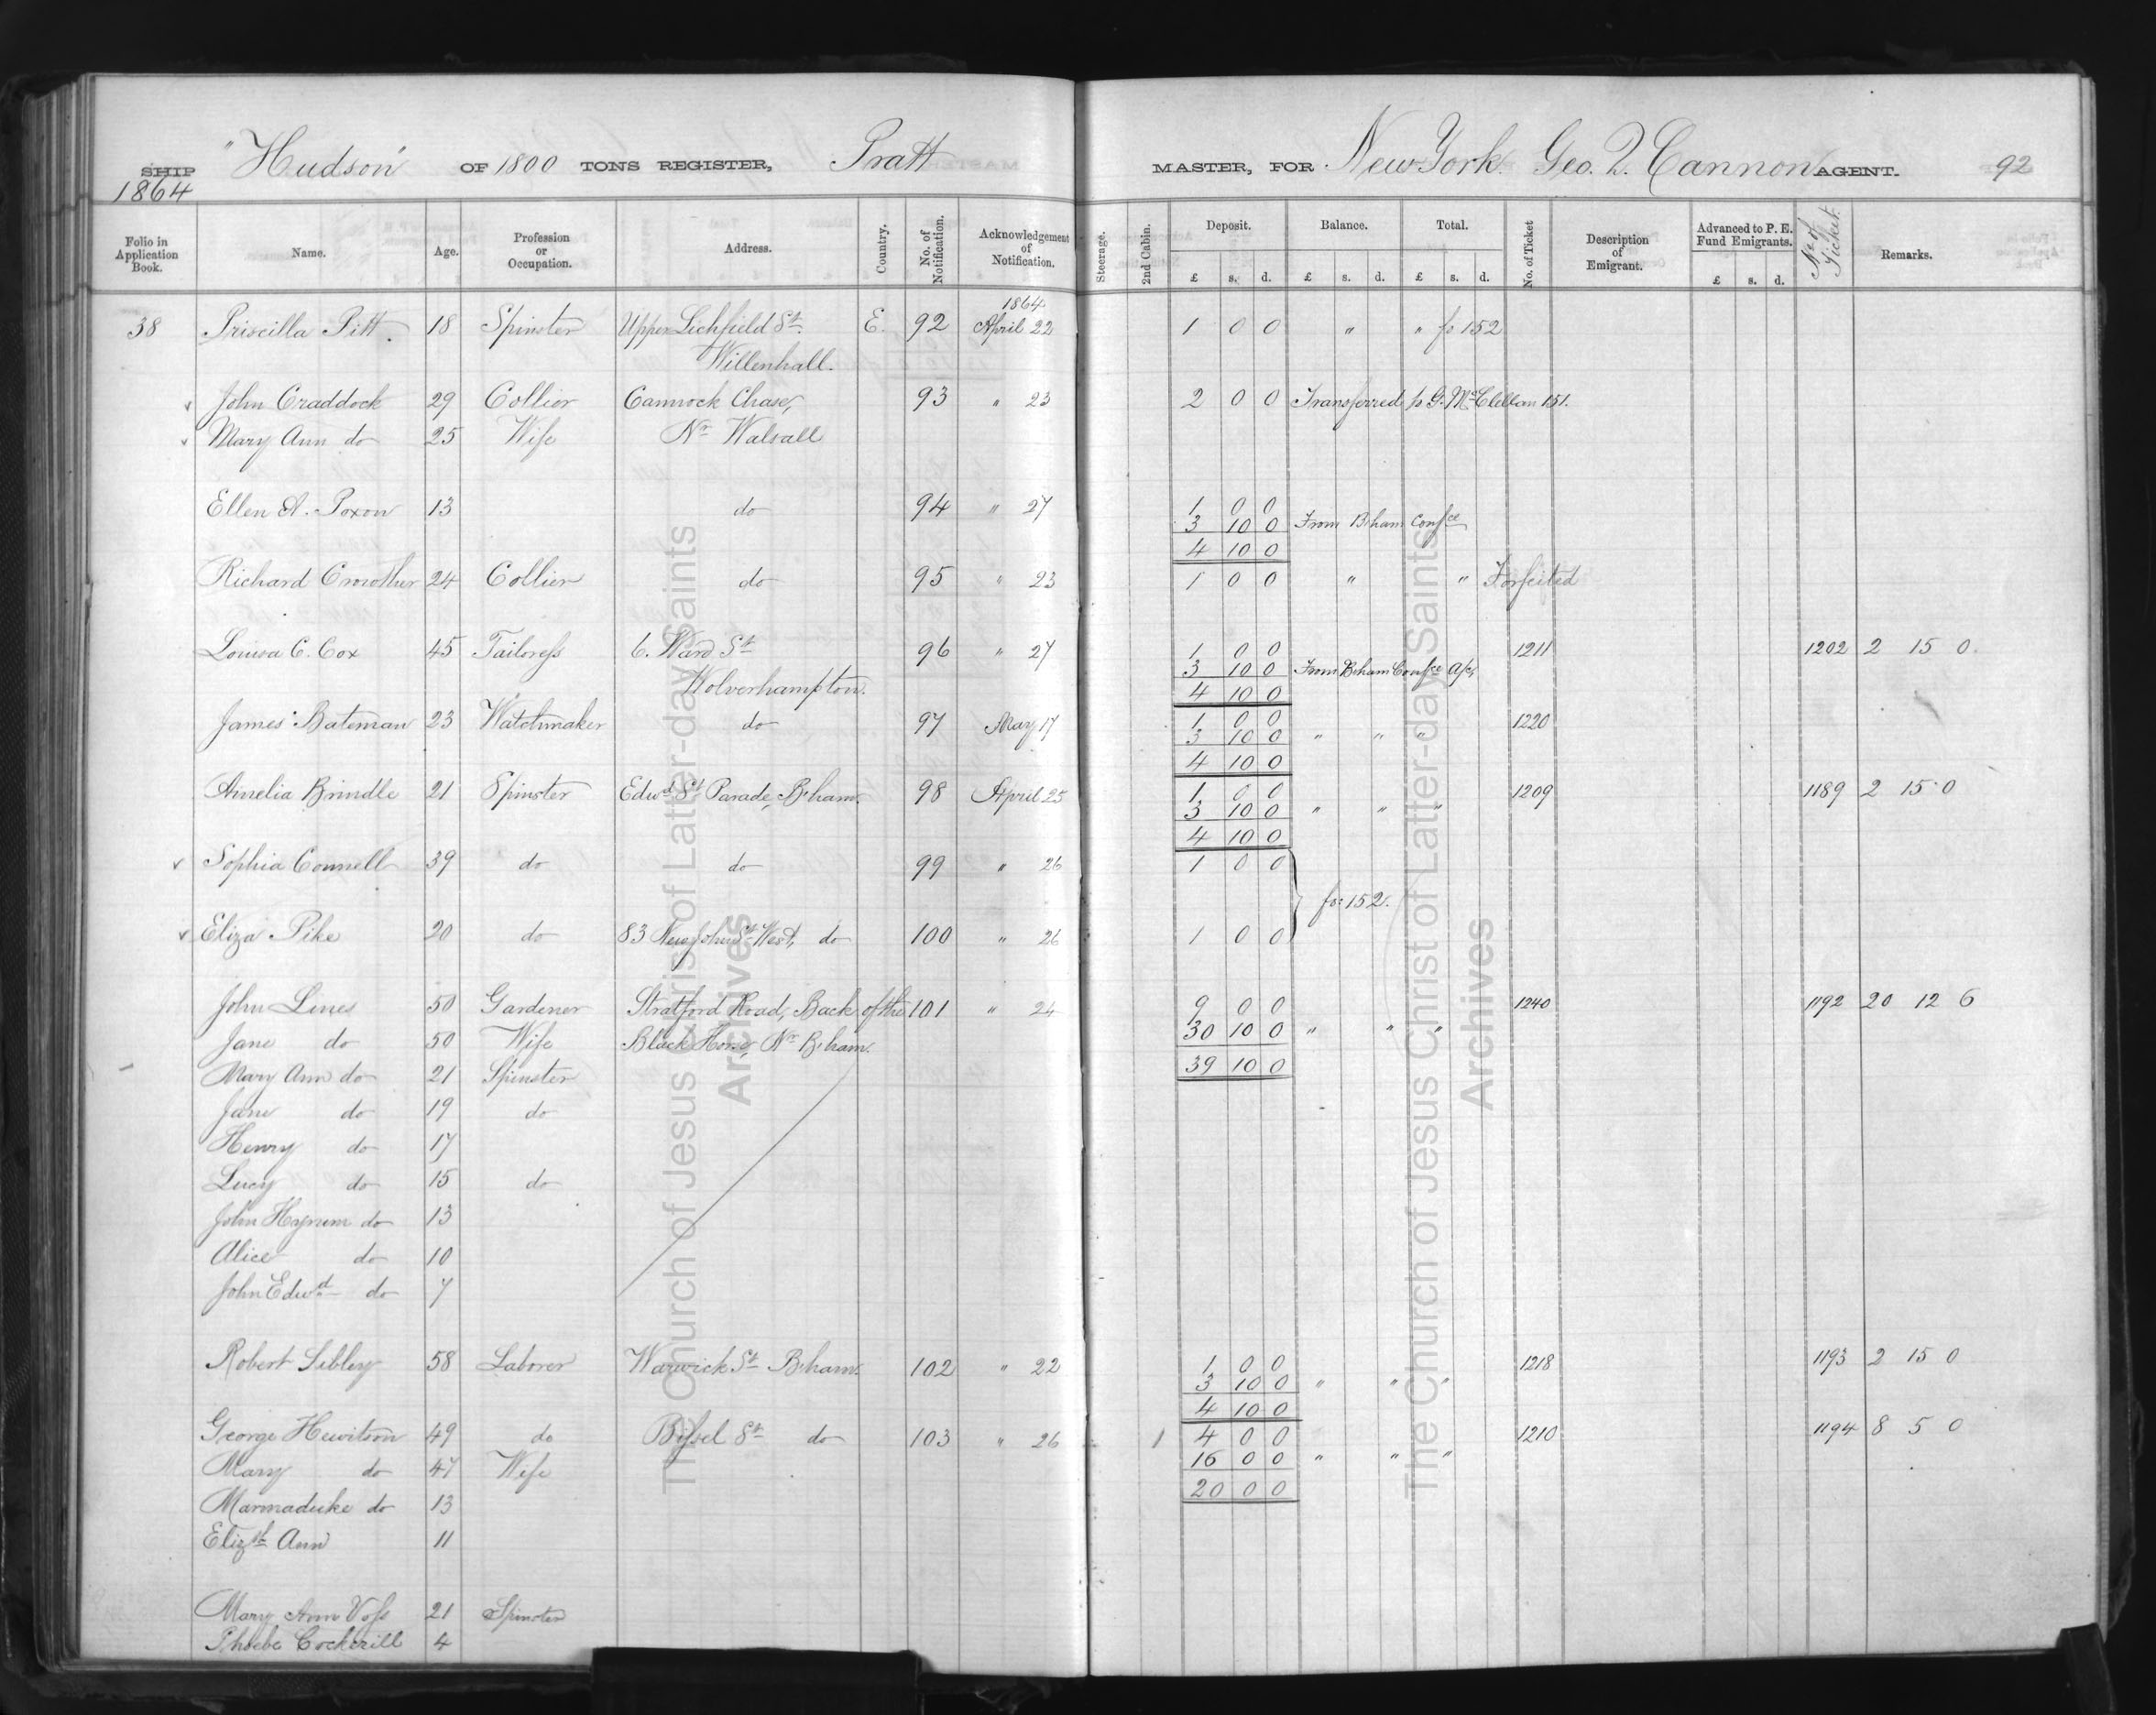 SHIP "Hudson" OF 1800 TONS REGISTER, Pratt MASTER, FOR New York. Geo. Q. Cannon AGENT. 92
1864
Folio in Application Book. Name. Age. Profession or Occupation. Address. Country. No. of Notification. Acknowledgement of Notification. Steerage. 2nd Cabin. Deposit. Balance. Total. No. of Ticket Description of Emigrant. Advanced to P. E. Fund Emigrants. No of Ticket. Remarks.
£ s. d. £ s. d. £ s. d. £ s. d.
1864
38 Priscilla Pitt. 18 Spinster Upper Lichfield St. E. 92 April 22 1 0 0 " " fo 152
Willenhall.
John Craddock 29 Collier Cannock Chase, 93 " 23 2 0 0 Transferred fo G. McClellan 151.
Mary Ann do 25 Wife Nr Walsall
Ellen A. Poxon 13 do 94 " 27 1 0 0
3 10 0 From B.ham Confce
4 10 0
Richard Crowther 24 Collier do 95 " 23 1 0 0 " " Forfeited
Louisa C. Cox 45 Tailoress 6. Ward St 96 " 27 1 0 0 1211 1202 2 15 0.
3 10 0 From B.ham Confce A/c
Wolverhampton. 4 10 0
James Bateman 23 Watchmaker do 97 May 17 1 0 0 1220
3 10 0 " " "
4 10 0
Amelia Brindle 21 Spinster Edwd St Parade, B.ham. 98 April 25 1 0 0 1209 1189 2 15 0
3 10 0 " " "
4 10 0
Sophia Connell 39 do do 99 " 26 1 0 0
fo: 152.
Eliza Pike 20 do 83 New John St West, do 100 " 26 1 0 0
John Lines 50 Gardener Stratford Road, Back of the 101 " 24 9 0 0 1240 1192 20 12 6
Jane do 50 Wife Black Horse, Nr B.ham. 30 10 0 " " "
Mary Ann do 21 Spinster 39 10 0
Jane do 19 do
Henry do 17
Lucy do 15 do
John Hyrum do 13
Alice do 10
John Edwd do 7
Robert Sibley 58 Laborer Warwick St B.ham. 102 " 22 1 0 0 1218 1193 2 15 0
3 10 0 " " "
4 10 0
George Hewitson 49 do Bissel St do 103 " 26 1 4 0 0 1210 1194 8 5 0
Mary do 47 Wife 16 0 0 " " "
Marmaduke do 13 20 0 0
Elizth Ann 11
Mary Ann Voss 21 Spinster
Phoebe Cockerill 4
The Church of Jesus Christ of Latter-day Saints
Archives
The Church of Jesus Christ of Latter-day Saints
Archives